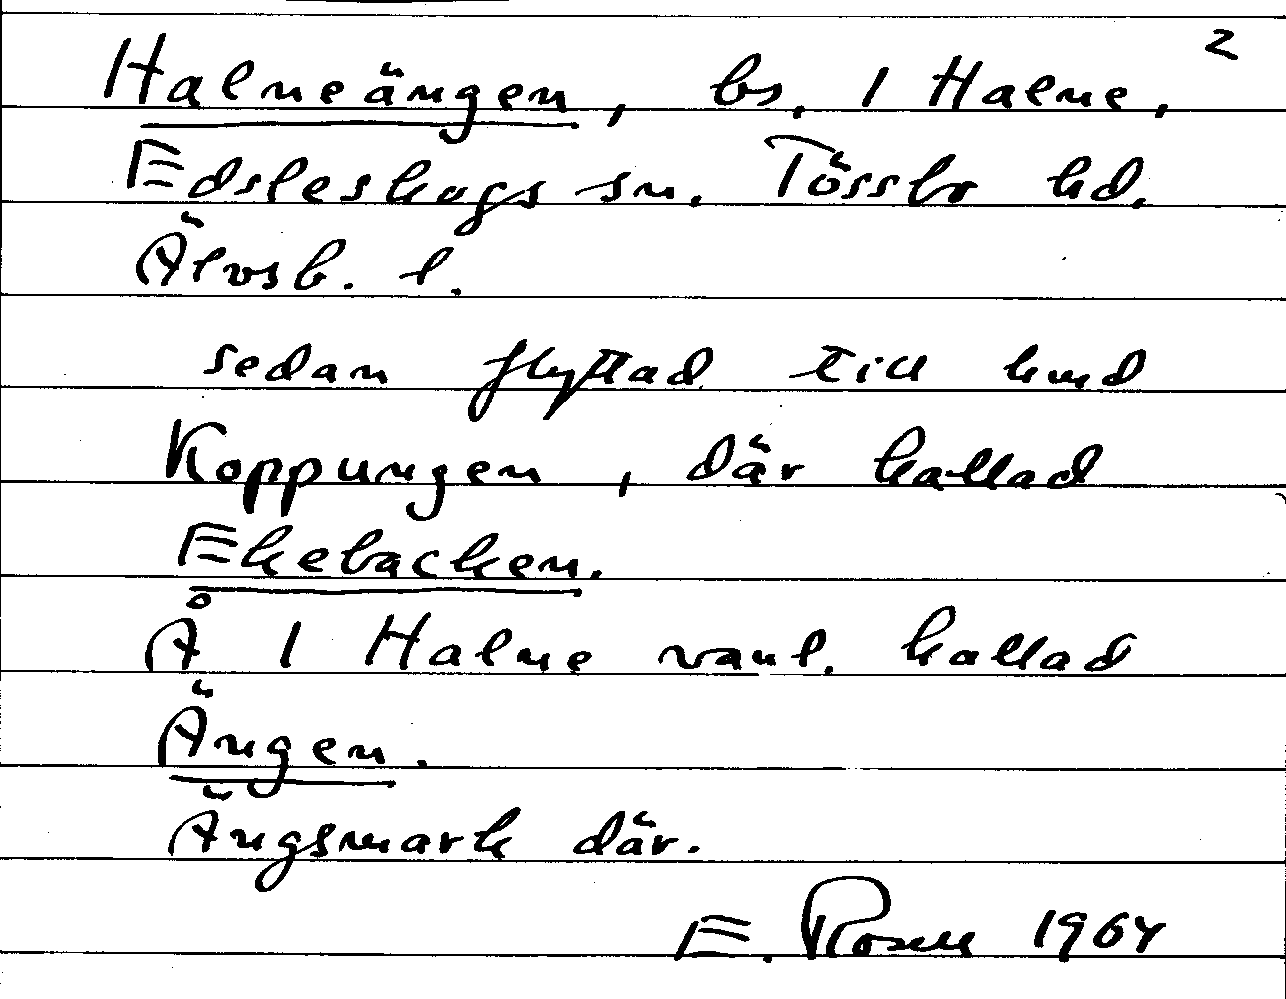 2
Halneängen, bs. 1 Halne,
Edsleskogs sn. Tössbo hd.
Älvsb. l.
sedan flyttad till hmd
Koppungen, där kallad
Ekebacken.
Å 1 Halne vanl. kallad
Ängen.
Ängsmark där.
E. Rosell 1964